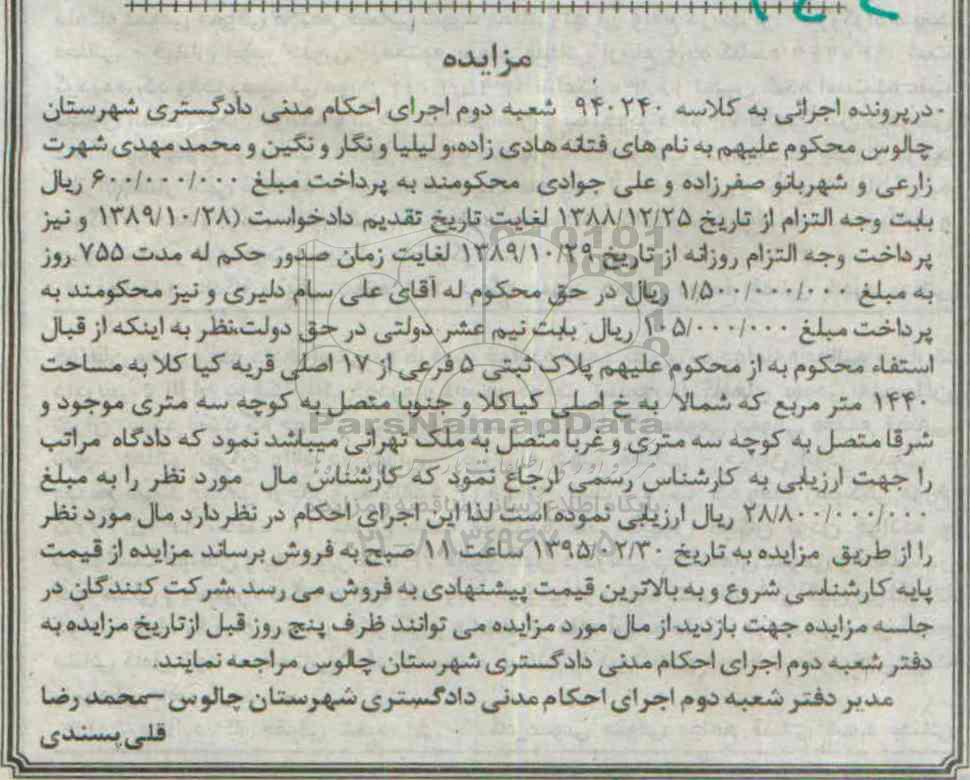 مزایده
-درپرونده اجرائی به کلاسه ۹۴۰۲۴۰ شعبه دوم اجرای احکام مدنی دادگستری شهرستان
چالوس محکوم علیهم به نام های فتانه هادی زاده،و لیلیا و نگار و نگین و محمد مهدی شهرت
زارعی و شهربانو صفرزاده و علی جوادی محکومند به پرداخت مبلغ ۶۰۰/۰۰۰/۰۰۰ ریال
بابت وجه التزام از تاریخ ۱۳۸۸/۱۲/۲۵ لغایت تاریخ تقدیم دادخواست (۱۳۸۹/۱۰/۲۸ و نیز
پرداخت وجه التزام روزانه از تاریخ ۱۳۸۹/۱۰/۲۹ لغایت زمان صدور حکم له مدت ۷۵۵ روز
به مبلغ ۱/۵۰۰/۰۰۰/۰۰۰ ریال در حق محکوم له آقای علی سام دلیری و نیز محکومند به
پرداخت مبلغ ۱۰۵/۰۰۰/۰۰۰ ریال بابت نیم عشر دولتی در حق دولت،نظر به اینکه از قبال
استفاء محکوم به از محکوم علیهم پلاک ثبتی ۵ فرعی از ۱۷ اصلی قریه کیا کلا به مساحت
۱۴۴۰ متر مربع که شمالا به خ اصلی کیاکلا و جنوبا متصل به کوچه سه متری موجود و
شرقا متصل به کوچه سه متری و غربا متصل به ملک تهرانی میباشد نمود که دادگاه مراتب
را جهت ارزیابی به کارشناس رسمی ارجاع نمود که کارشناس مال مورد نظر را به مبلغ
۲۸/۸۰۰/۰۰۰/۰۰۰ ریال ارزیابی نموده است لذا این اجرای احکام در نظر دارد مال مورد نظر
را از طریق مزایده به تاریخ ۱۳۹۵/۰۲/۳۰ ساعت ۱۱ صبح به فروش برساند .مزایده از قیمت
پایه کارشناسی شروع و به بالاترین قیمت پیشنهادی به فروش می رسد .شرکت کنندگان در
جلسه مزایده جهت بازدید از مال مورد مزایده می توانند ظرف پنج روز قبل ازتاریخ مزایده به
دفتر شعبه دوم اجرای احکام مدنی دادگستری شهرستان چالوس مراجعه نمایند.
مدیر دفتر شعبه دوم اجرای احکام مدنی دادگستری شهرستان چالوس –محمد رضا
قلی پسندی
ParsNamadData